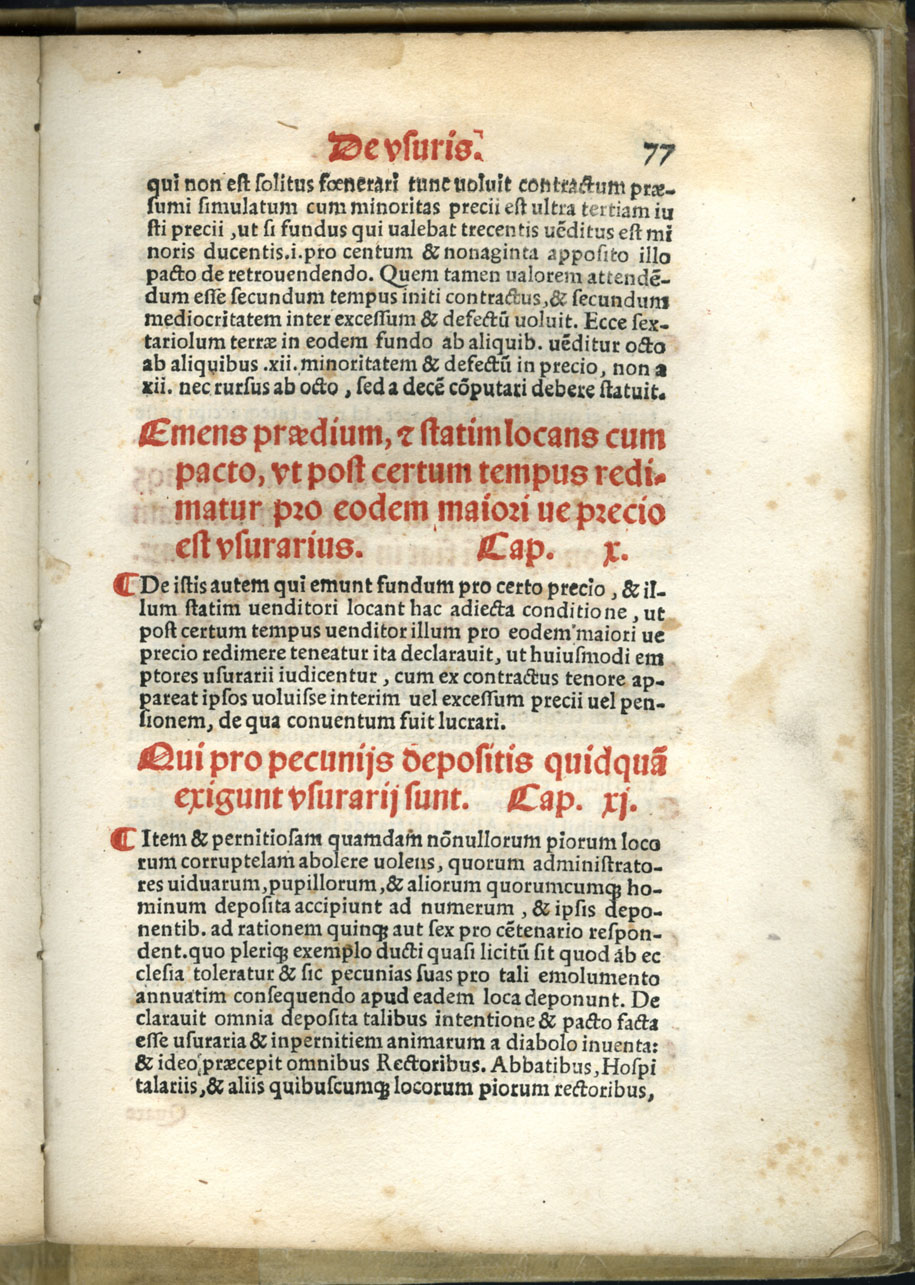 De vſuris.
77
qui non eſt ſolitus fœnerari tunc uoluit contractum præ-
ſumi ſimulatum cum minoritas precii eſt ultra tertiam iu
ſti precii ,ut ſi fundus qui ualebat trecentis uẽditus eſt mi
noris ducentis.i.pro centum & nonaginta appoſito illo
pacto de retrouendendo. Quem tamen ualorem attendẽ-
dum eſſe ſecundum tempus initi contractus,& ſecundum
mediocritatem inter exceſſum & defectũ uoluit. Ecce ſex-
tariolum terræ in eodem fundo ab aliquib. uẽditur octo
ab aliquibus .xii. minoritatem & defectũ in precio, non a
xii. nec rurſus ab octo , ſed a decẽ cõputari debere ſtatuit.
Emens prædium, ⁊ ſtatim locans cum
pacto, vt poſt certum tempus redi-
matur pro eodem maiori ue precio
eſt vſurarius. Cap. x.
¶ De iſtis autem qui emunt fundum pro certo precio , & il-
lum ſtatim uenditori locant hac adiecta conditione , ut
poſt certum tempus uenditor illum pro eodem maiori ue
precio redimere teneatur ita declarauit, ut huiuſmodi em
ptores uſurarii iudicentur , cum ex contractus tenore ap-
pareat ipſos uoluiſſe interim uel exceſſum precii uel pen-
ſionem, de qua conuentum fuit lucrari.
Qui pro pecunijs depoſitis quidquã
exigunt vſurarij ſunt. Cap. xj.
¶ Item & pernitioſam quamdam nõnullorum piorum loco
rum corruptelam abolere uolens, quorum adminiſtrato-
res uiduarum,pupillorum,& aliorum quorumcumqꝫ ho-
minum depoſita accipiunt ad numerum , & ipſis depo-
nentib. ad rationem quinqꝫ aut ſex pro cẽtenario reſpon-
dent.quo pleriqꝫ exemplo ducti quaſi licitũ ſit quod ab ec
cleſia toleratur & ſic pecunias ſuas pro tali emolumento
annuatim conſequendo apud eadem loca deponunt. De
clarauit omnia depoſita talibus intentione & pacto facta
eſſe uſuraria & inpernitiem animarum a diabolo inuenta:
& ideo præcepit omnibus Rectoribus. Abbatibus, Hoſpi
talariis,& aliis quibuſcumqꝫ locorum piorum rectoribus,